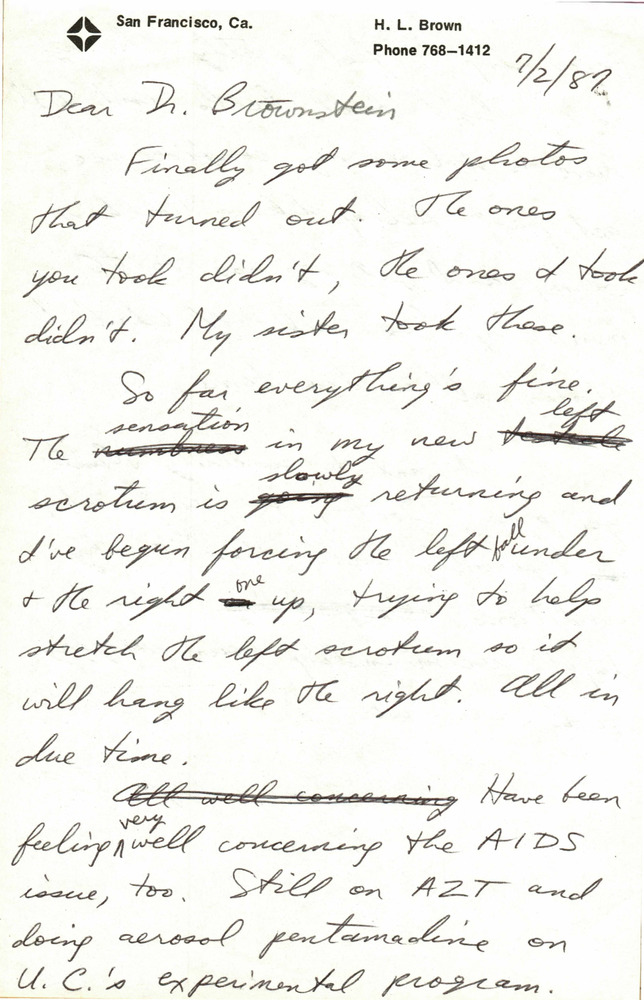 San Francisco, Ca.
H. L. Brown
Phone 768-1412
7/2/87
Dear Dr. Brownstein
Finally got some photos
that turned out. The ones
you took didn't, the ones I took
didn't. My sister took these.
So far everything's fine.
The numbness sensation in my new testicle left
scrotum is going slowly returning and
I've begun forcing the left ball under
+ the right one up, trying to help
stretch the left scrotum so it
will hang like the right. All in
due time.
All well concerning Have been
feeling very well concerning the AIDS
issue, too. Still on AZT and
doing aerosol pentamadine on
U.C.'s experimental program.